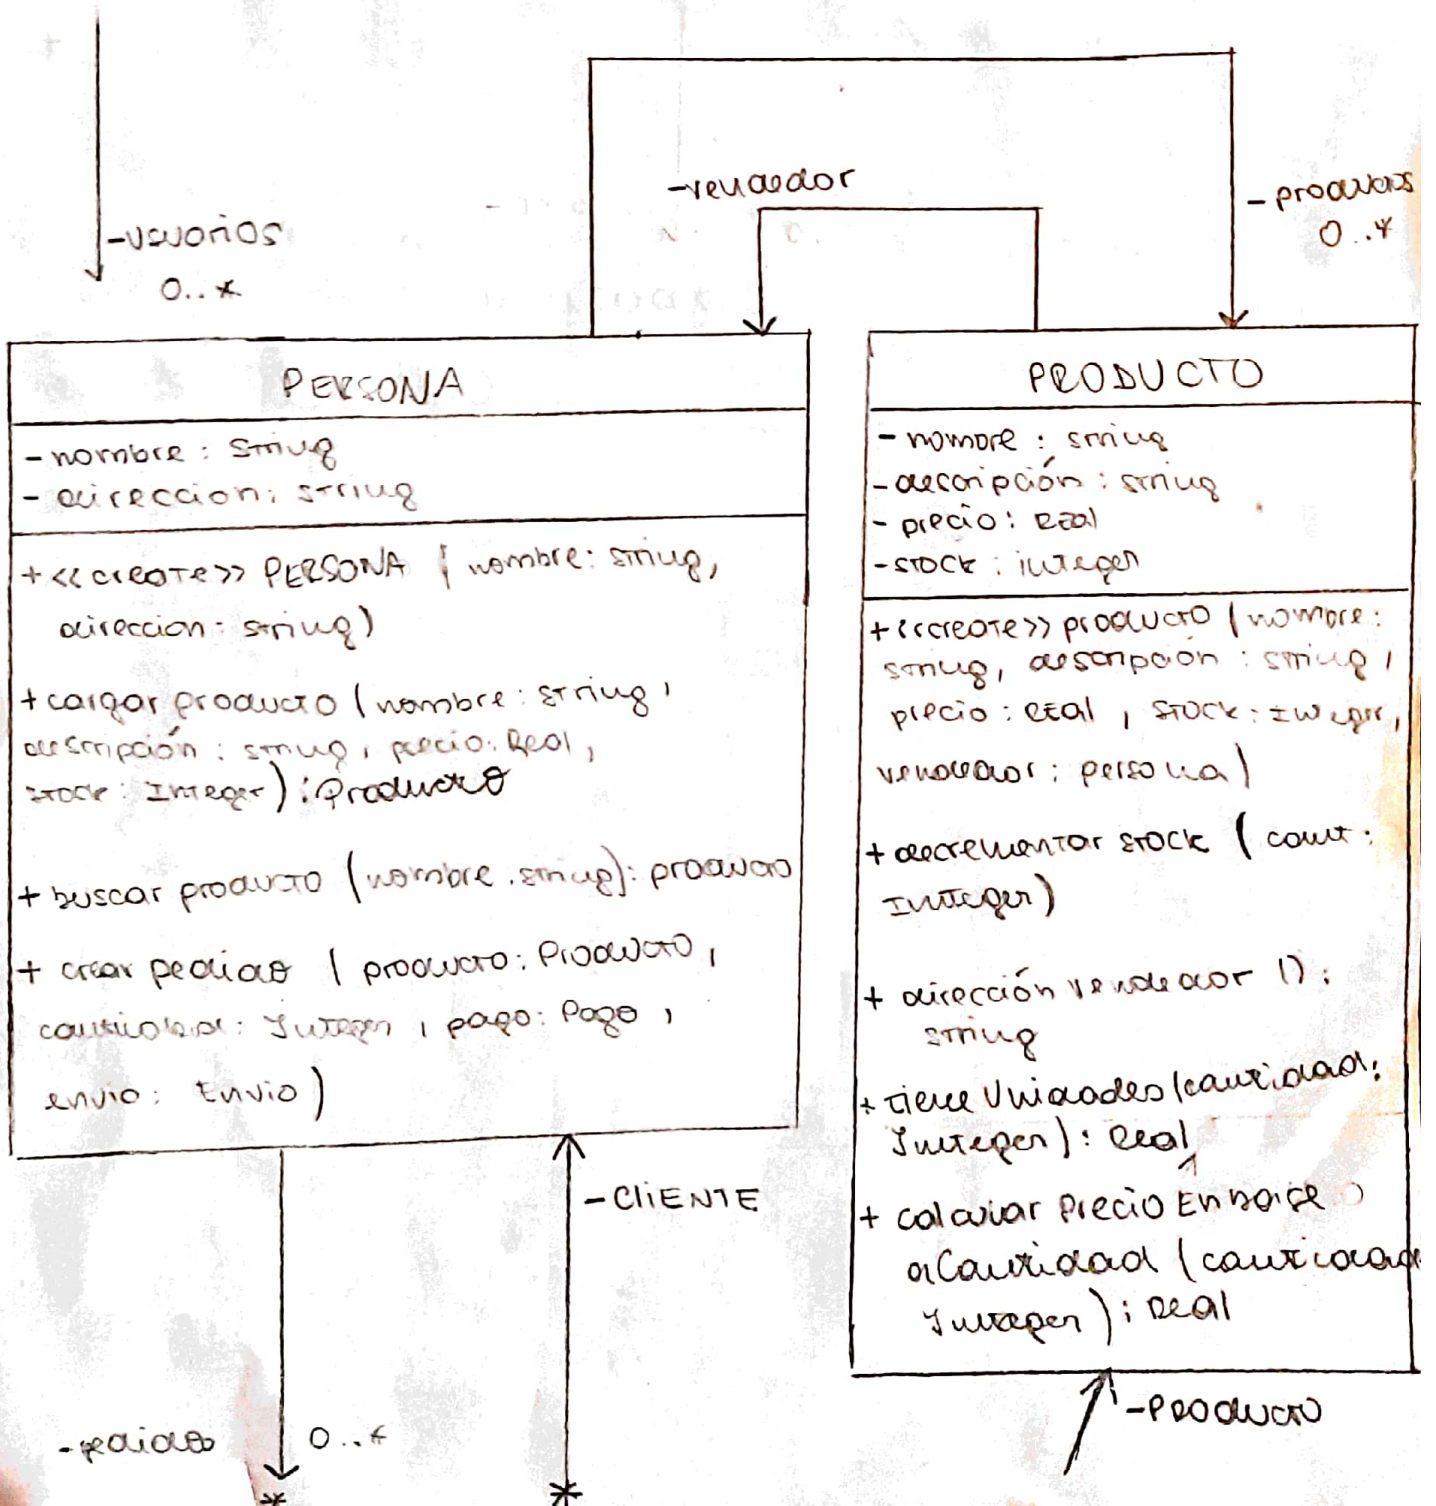 -usuarios
0..*
-vendedor
-productos
0..*
PERSONA
- nombre: String
- direccion: string
+ <<create>> PERSONA ( nombre: string,
direccion: string)
+ cargar producto (nombre: string,
descripción: string, precio: Real,
stock: Integer): Producto
+ buscar producto (nombre: string): producto
+ crear pedido ( producto: Producto,
cantidad: Integer, pago: Pago,
envio: Envio)
PRODUCTO
- nombre: string
- descripción: string
- precio: Real
- stock: integer
+ <<create>> producto (nombre:
string, descripción: string,
precio: Real, stock: Integer,
vendedor: persona)
+ decrementar stock (cant:
Integer)
+ dirección vendedor ():
string
+ tiene Unidades (cantidad:
Integer): Real
+ calcular Precio En base
a Cantidad (cantidad
Integer): Real
-CLIENTE
-pedidos
0..*
-Producto
*
*